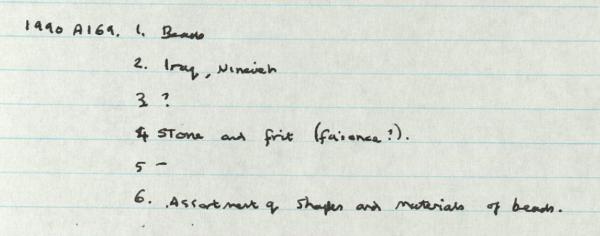 1990 A169. 1. Beads
2. Iraq, Nineveh
3 ?
4 Stone and frit (faience?).
5 -
6. Assortment of shapes and materials of beads.